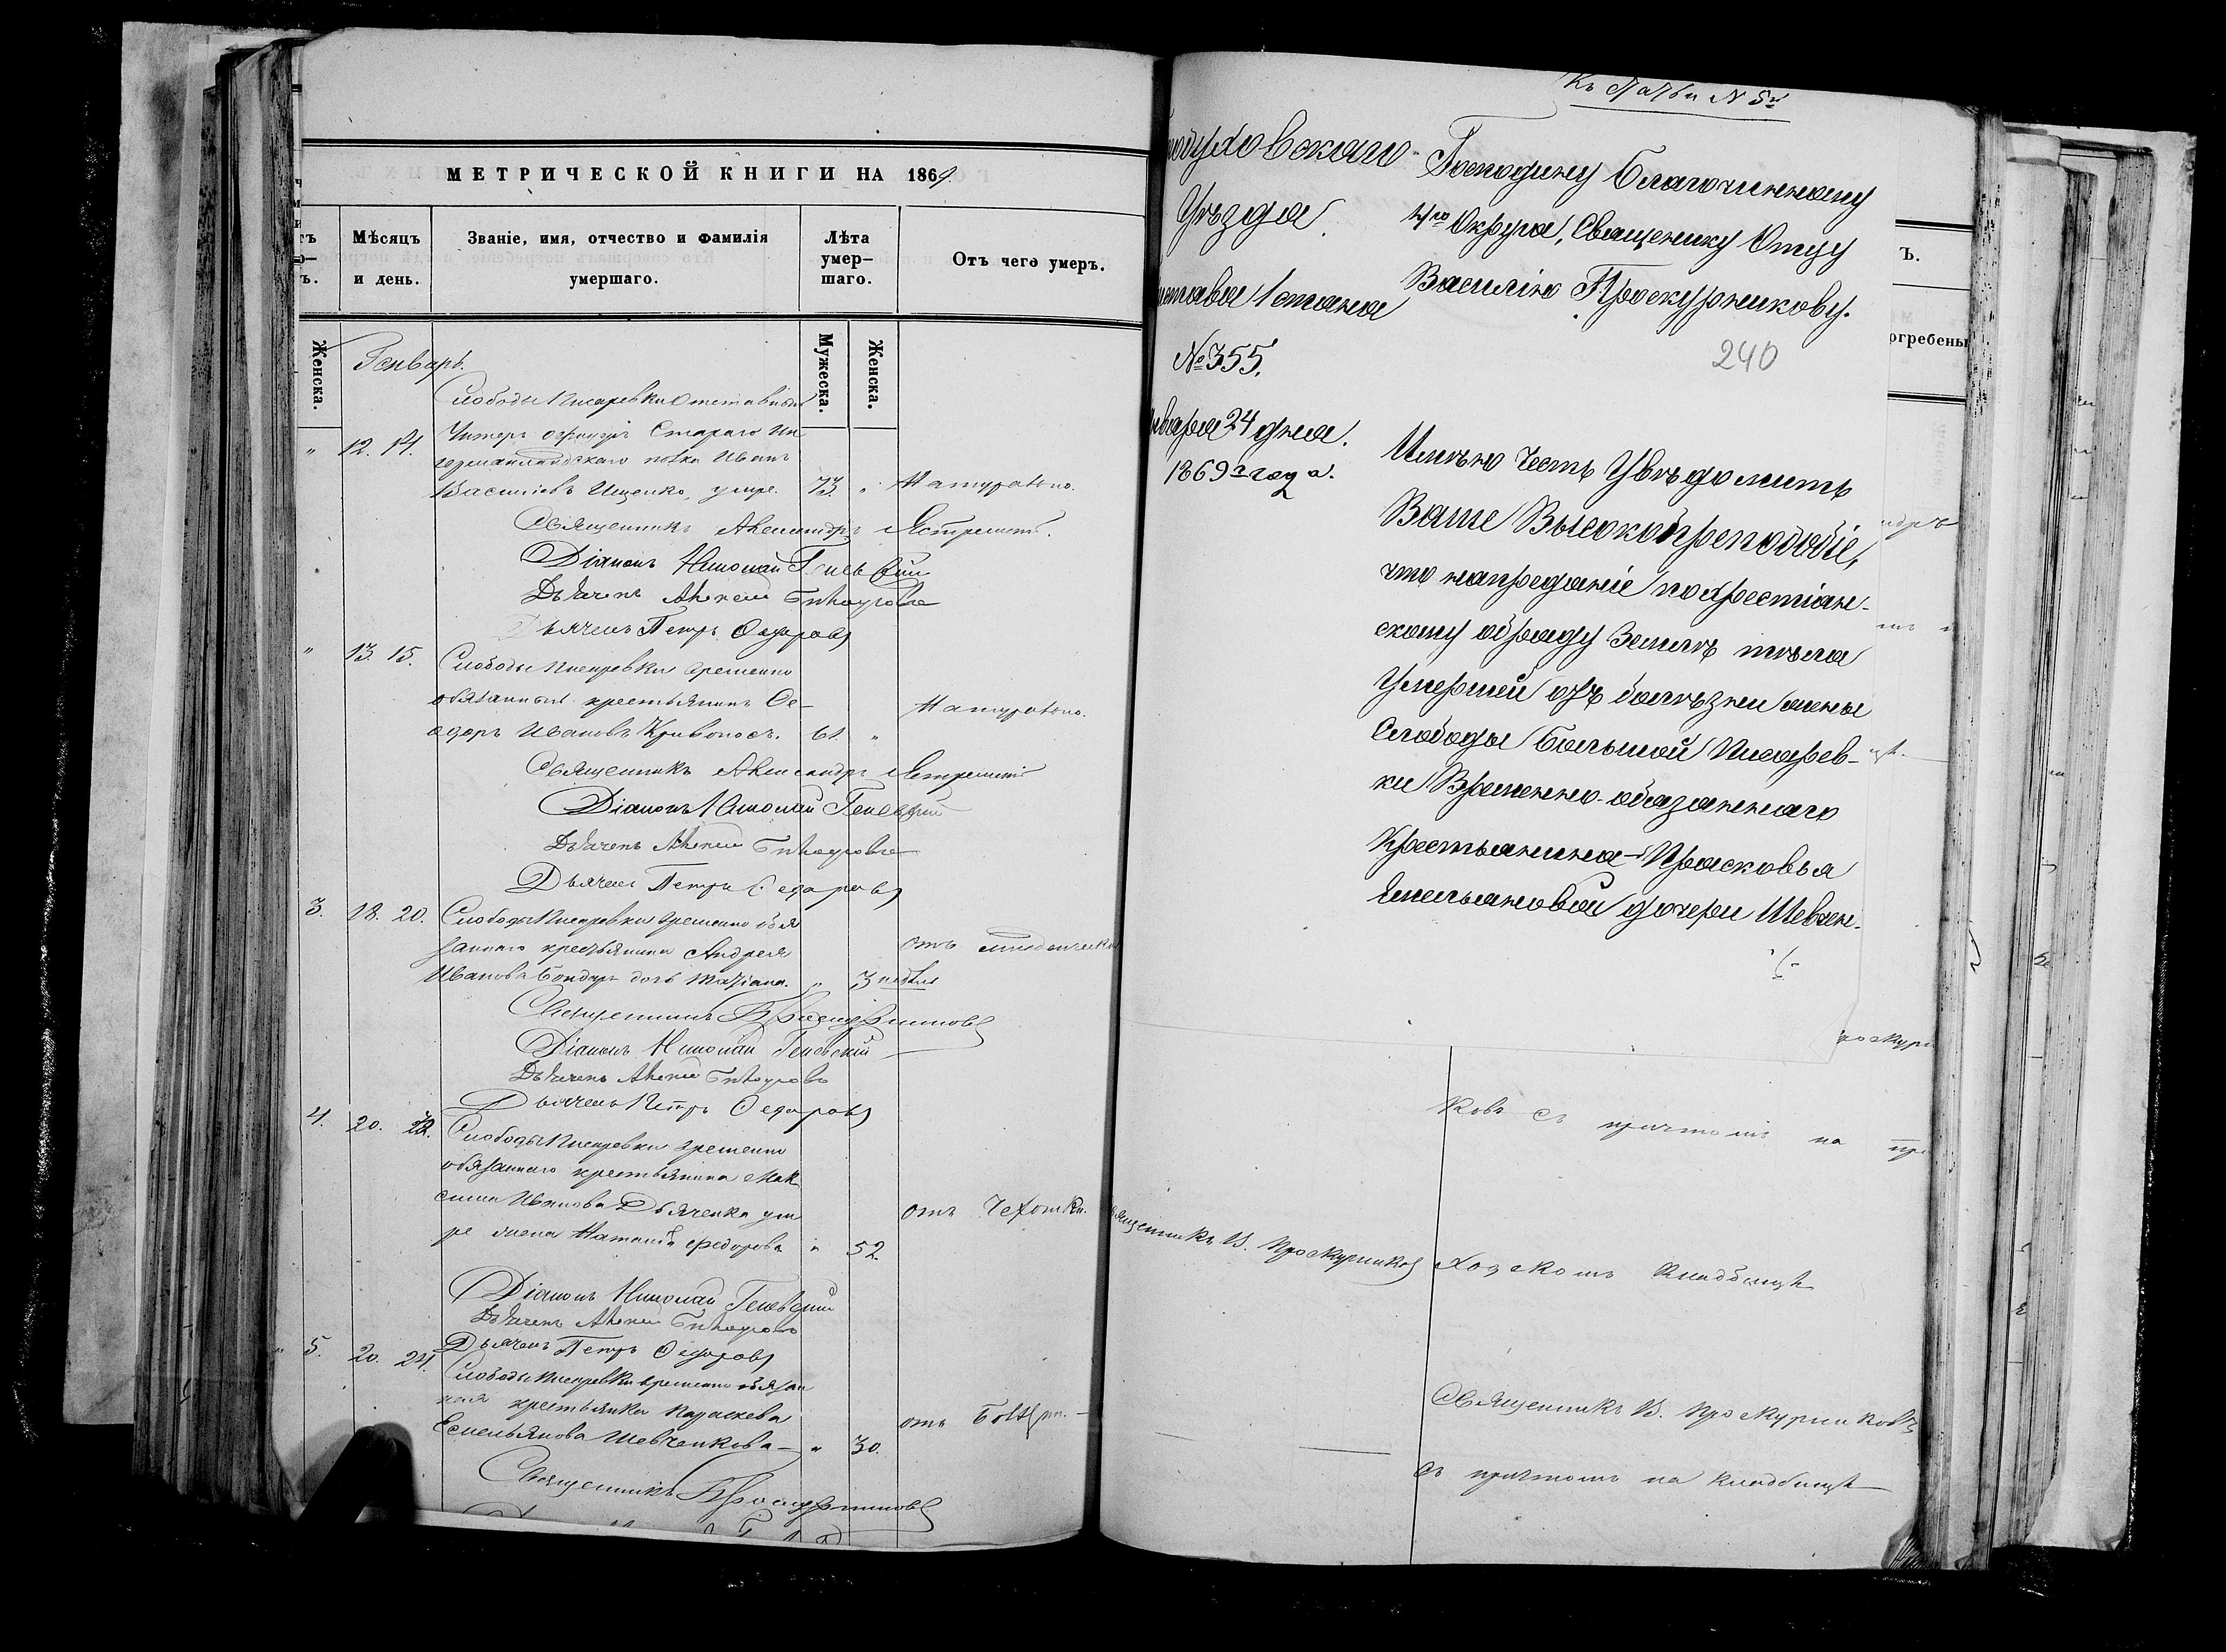 МЕТРИЧЕСКОЙ КНИГИ НА 1869
Мѣсяцъ и день.
Званіе, имя, отчество и фамилія умершаго.
Лѣта умершаго.
Отъ чего умеръ.
Женска.
Мужеска.
Женска.
Генварь.
Слободы Писаревки Отставный
12. 14.
Унтеръ офицеръ Стараго Ин
германландскаго полка Иванъ
Васильевъ Ищенко, умре. 73. " Натурально.
Священникъ Александръ
Діаконъ Николай Геневскій
Дьячекъ Алексей
Дьячекъ Петръ Федоровъ
" 13. 15. Слободы Писаревки временно
обязанный крестьянинъ Ѳе-
одоръ Ивановъ Кривоносъ. 61. " Натурально.
Священникъ Александръ
Діаконъ Николай Геневскій
Дьячекъ Алексей
Дьячекъ Петръ Федоровъ
3. 18. 20. Слободы Писаревки временно обя
заннаго крестьянина Андрея
Иванова Бондаря дочь Татіана. " 3 недѣли отъ младенческой
Священникъ Проскурниковъ
Діаконъ Николай Геневскій
Дьячекъ Алексей
Дьячекъ Петръ Федоровъ
4. 20. 22. Слободы Писаревки временно
обязаннаго крестьянина Мак
сима Иванова Дьяченка ум
ре жена Наталія Федорова " 52 отъ Чахотки.
Діаконъ Николай Геневскій
Дьячекъ Алексей
Дьячекъ Петръ Федоровъ
5. 20. 24. Слободы Писаревки временно обязан
ная крестьянка Параскева
Емельянова Шевченкова — " 30. отъ Болѣзни.
Священникъ Проскурниковъ
Къ Статьи N 5й
одуховскаго
Уѣзда
става 1 стана
№ 355.
нваря 24 дня.
1869го года.
Господину Благочинному
4го Округа, Священику Отцу
Василію Проскурникову.
240
Имѣю честь Увѣдомить
Ваше Высокопреподобіе,
что напреданіе похрестіан-
скому обряду Землѣ тѣла
Умершей отъ болѣзни жены
Слободы Большой Писарев-
ки Временно-обязаннаго
Крестьянина-Прасковья
Емельяновой дочери Шевчен-
Ъ.
огребены
ковъ съ причтомъ на
ященникъ В. Проскурниковъ
кладбищѣ
Священникъ В. Проскурниковъ
съ причтомъ на кладбищѣ